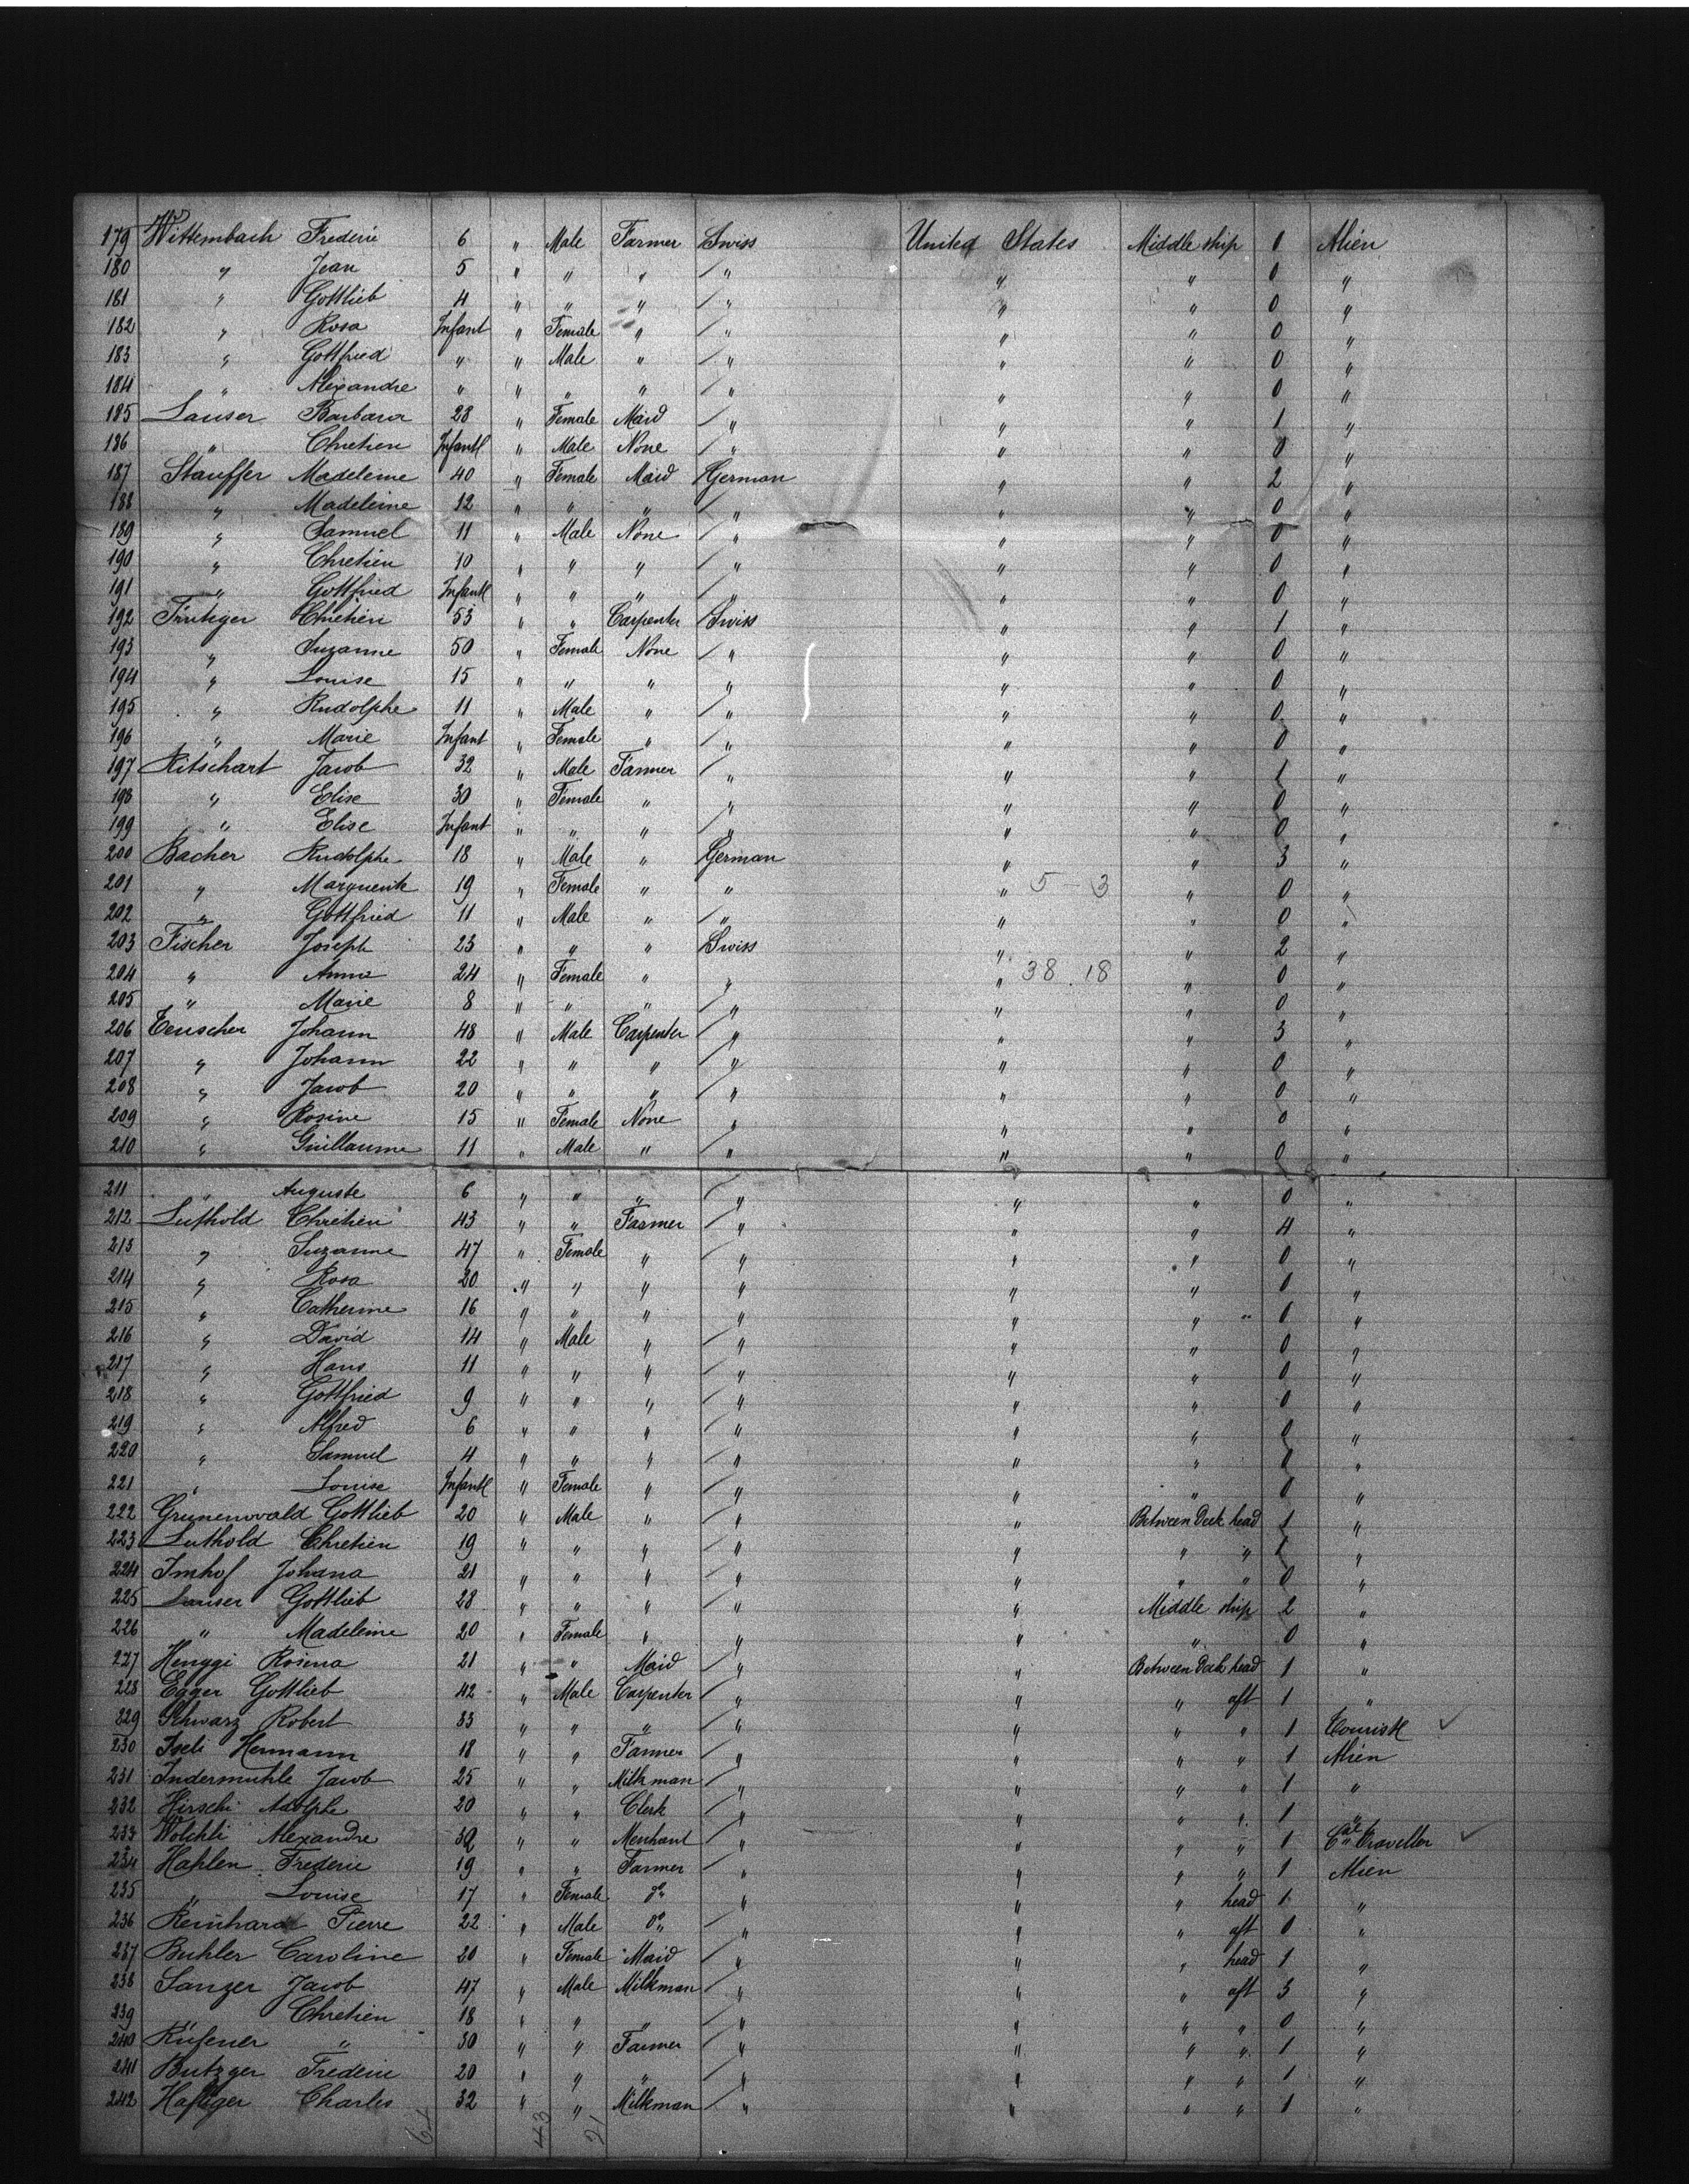 179 Wittembach Frederic 6 " Male Farmer Swiss United States Middle ship 1 Alien
180 " Jean 5 " " " " " " 0 "
181 " Gottlieb 4 " " " " " " 0 "
182 " Rosa Infant " Female " " " " 0 "
183 " Gottfried " " Male " " " " 0 "
184 " Alexandre " " " " " " " 0 "
185 Lauser Barbara 28 " Female Maid " " " 1 "
186 " Chretien Infant " Male None " " " 0 "
187 Stauffer Madeleine 40 " Female Maid German " " 2 "
188 " Madeleine 12 " " " " " " 0 "
189 " Samuel 11 " Male None " " " 0 "
190 " Chretien 10 " " " " " " 0 "
191 " Gottfried Infant " " " " " " 0 "
192 Frutiger Chretien 53 " " Carpenter Swiss " " 1 "
193 " Suzanne 50 " Female None " " " 0 "
194 " Louise 15 " " " " " " 0 "
195 " Rudolphe 11 " Male " " " " 0 "
196 " Marie Infant " Female " " " " 0 "
197 Ritschart Jacob 32 " Male Farmer " " " 1 "
198 " Elise 30 " Female " " " " 0 "
199 " Elise Infant " " " " " " 0 "
200 Bacher Rudolphe 18 " Male " German " " 3 "
201 " Marguerite 19 " Female " " " 5 3 " 0 "
202 " Gottfried 11 " Male " " " " 0 "
203 Fischer Joseph 23 " " " Swiss " " 2 "
204 " Anna 24 " Female " " " 38 18 " 0 "
205 " Marie 8 " " " " " " 0 "
206 Teuscher Johann 48 " Male Carpenter " " " 3 "
207 " Johann 22 " " " " " " 0 "
208 " Jacob 20 " " " " " " 0 "
209 " Rosine 15 " Female None " " " 0 "
210 " Guillaume 11 " Male " " " " 0 "
211 " Auguste 6 " " " " " " 0 "
212 Luthold Chretien 43 " " Farmer " " " 4 "
213 " Suzanne 47 " Female " " " " 0 "
214 " Rosa 20 " " " " " " 0 "
215 " Catherine 16 " " " " " " 0 "
216 " David 14 " Male " " " " 0 "
217 " Hans 11 " " " " " " 0 "
218 " Gottfried 9 " " " " " " 0 "
219 " Alfred 6 " " " " " " 0 "
220 " Samuel 4 " " " " " " 0 "
221 " Louise Infant " Female " " " " 0 "
222 Grunenwald Gottlieb 20 " Male " " " Between Deck head 1 "
223 Luthold Chretien 19 " " " " " " " 1 "
224 Imhof Johana 21 " " " " " " " 0 "
225 Lauser Gottlieb 28 " " " " " Middle ship 2 "
226 " Madeleine 20 " Female " " " " 0 "
227 Henggi Rosina 21 " " Maid " " Between Deck head 1 "
228 Egger Gottlieb 42 " Male Carpenter " " " aft 1 "
229 Schwarz Robert 33 " " " " " " " 1 Tourist
230 Iseli Hermann 18 " " Farmer " " " " 1 Alien
231 Indermuhle Jacob 25 " " Milkman " " " " 1 "
232 Hirschi Adolphe 20 " " Clerk " " " " 1 "
233 Wölchli Alexandre 32 " " Merchant " " " " 1 Traveller
234 Hahlen Frederic 19 " " Farmer " " " " 1 Alien
235 " Louise 17 " Female do " " " head 1 "
236 Reinhard Pierre 22 " Male do " " " aft 0 "
237 Buhler Caroline 20 " Female Maid " " " head 1 "
238 Sanzer Jacob 47 " Male Milkman " " " aft 3 "
239 " Chretien 18 " " " " " " " 0 "
240 Rufener " 30 " " Farmer " " " " 1 "
241 Butzger Frederic 20 " " " " " " " 1 "
242 Hafliger Charles 32 " " Milkman " " " " 1 "
64 43 21